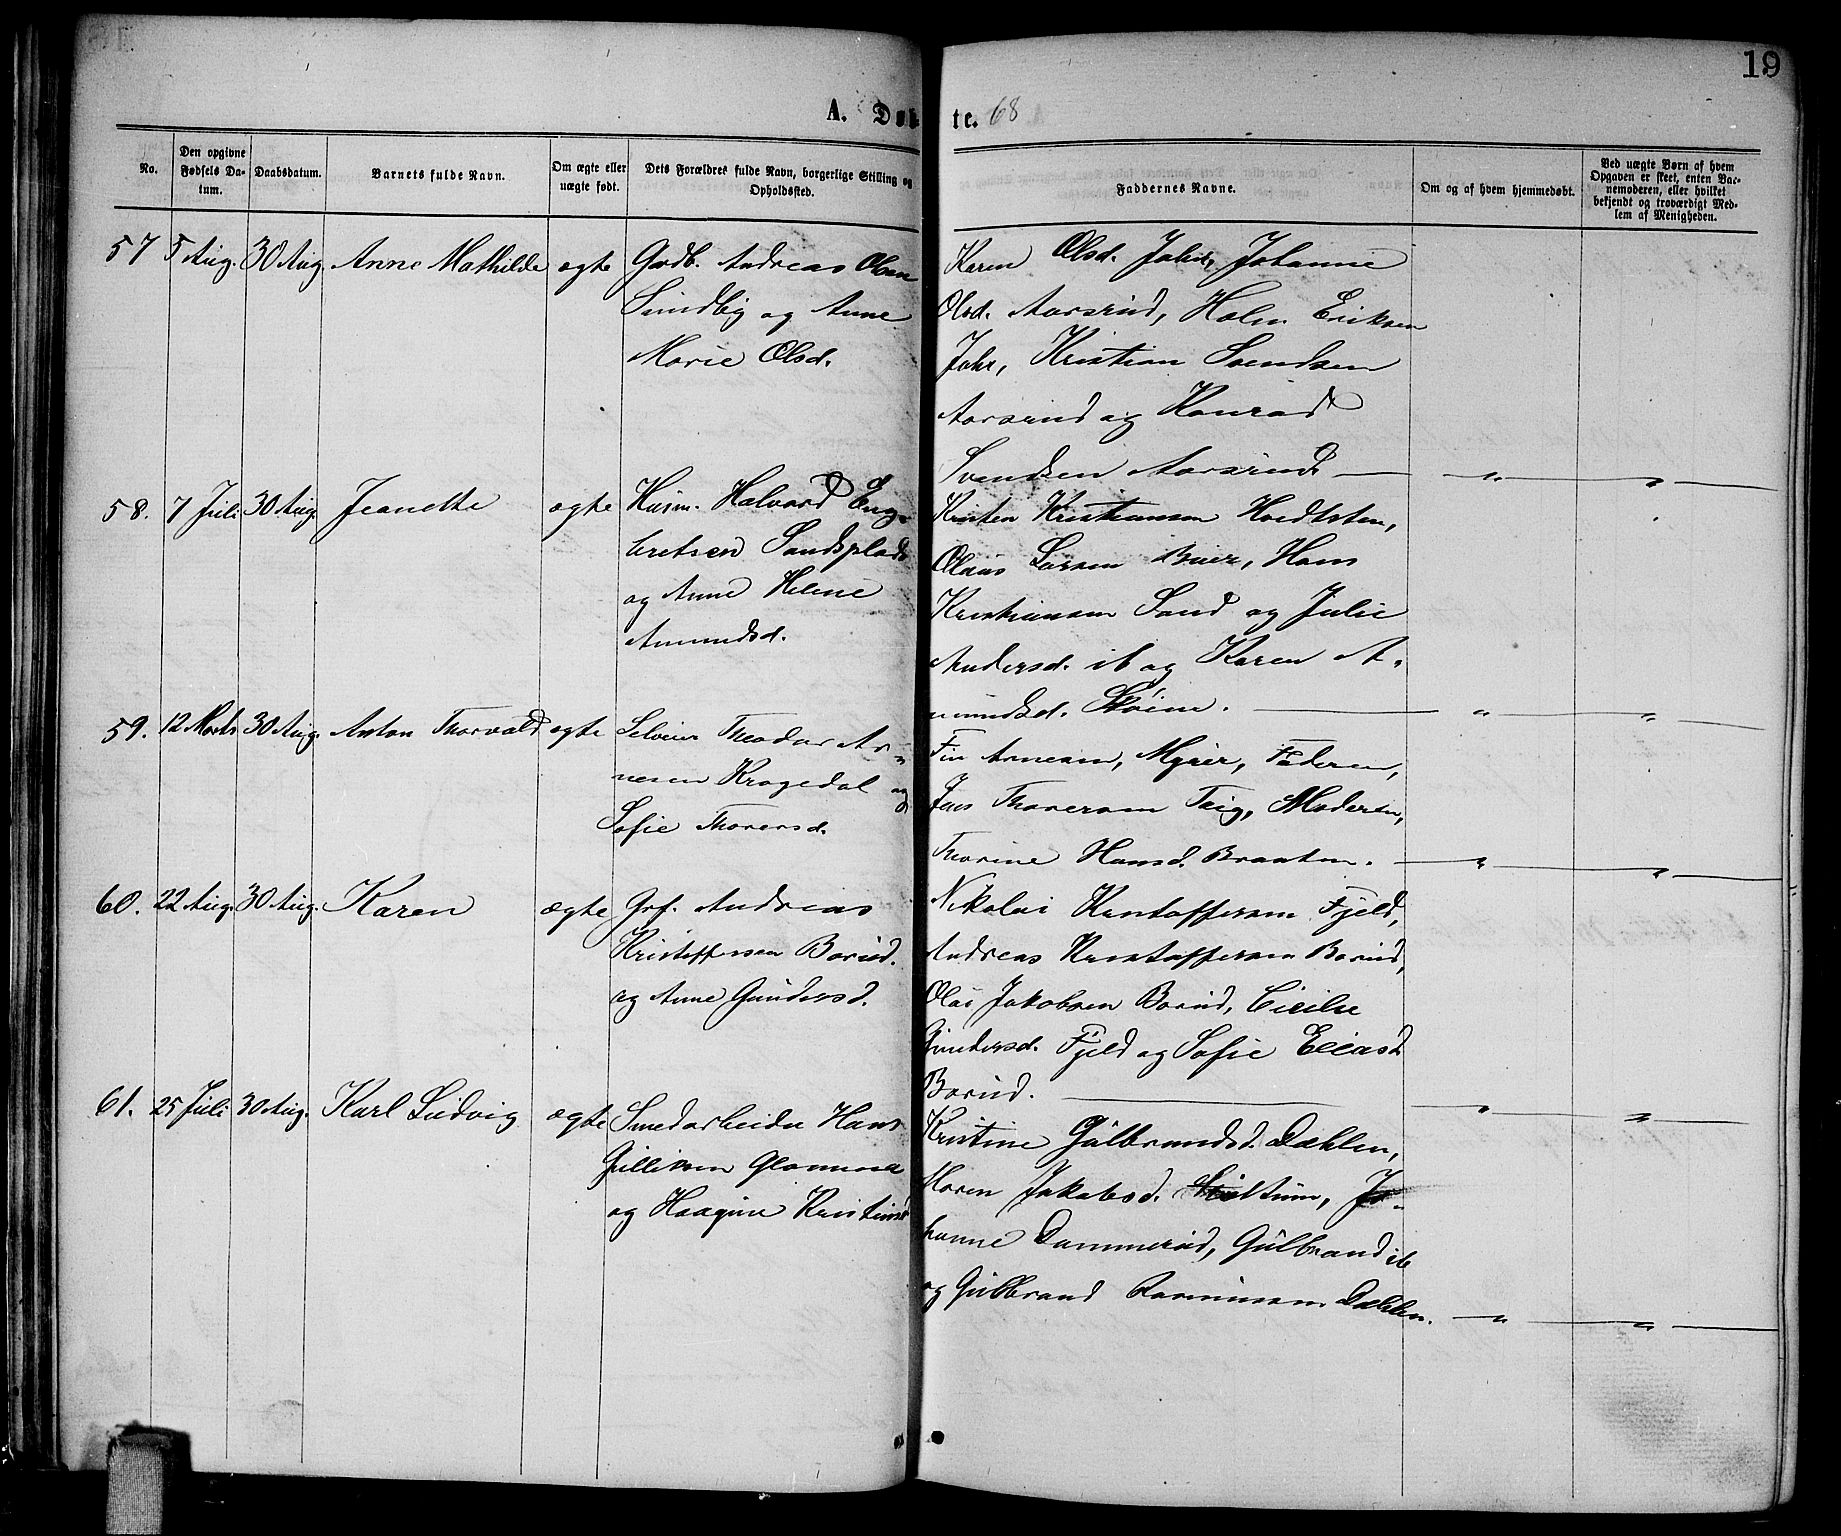 19
A. Døbte. 68
No.
Den opgivne Fødsels Datum.
Daabsdatum.
Barnets fulde Navn.
Om ægte eller uægte født.
Dets Forældres fulde Navn, borgerlige Stilling og Opholdssted.
Faddernes Navne.
Om og af hvem hjemmedøbt.
Ved uægte Børn af hvem Opgaven er skeet, enten Barnemoderen, eller hvilket bekjendt og troværdigt Medlem af Menigheden.
57 5 Aug. 30 Aug Anne Mathilde ægte Grdb. Andreas Olsen
Sundby og Anne
Marie Olsd.
Karen Olsd. Johanne
Olsd. Aarsrud, Eriksen
Kristian Svendsen
Aarsrud og Konrad
Svendsen Aarsrud — „ — „ —
58. 7 Juli 30 Aug. Jeanette ægte Husm. Halvard Eng-
bretsen Sandsplads
og Anne Helene
Amundsd.
Kristen Kristiansen
Olaus Larsen Hans
Kristiansen Sand og Julie
Andersd. ib og Karen A-
mundsd. — „ — „ —
59. 12 Marts 30 Aug. Anton Thorvald ægte Selveier Theodor Ar-
nesen Kragedal og
Sofie Thorersd.
Fin Arnesen, Myrer, Faderen,
Jens Thoresen Moderen,
Thorine Hansd. Braaten. — „ — „ —
60. 22 Aug. 30 Aug. Karen ægte Grf. Andreas
Kristoffersen Borud.
og Anne Gundersd.
Nikolai Kristoffersen Fjeld,
Andreas Kristoffersen Borud,
Jakobsen Borud, Cicilie
Gundersd. Fjeld og Sofie Eliasd
Borud. — „ — „ —
61. 25 Juli 30 Aug. Karl Ludvig ægte Smedarbeider Hans
Gulliksen
og Haagine Kristiansd
Kristine Gulbrandsd. Dæhlen,
Maren Jakobsd. Jo-
hanne Dammerud, Gulbrand ib
og Gulbrand Rasmussen Dæhlen. — „ — „ —